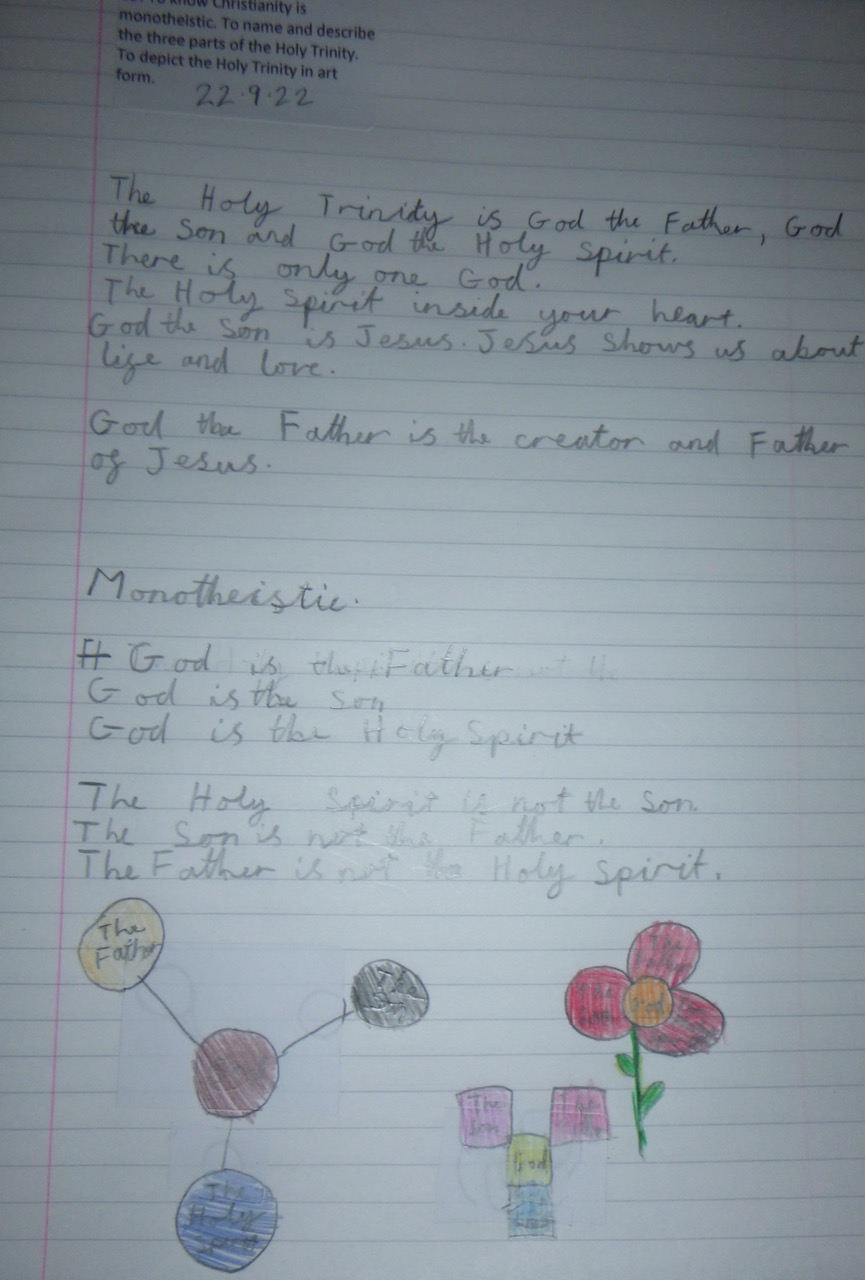 know Christianity is
monotheistic. To name and describe
the three parts of the Holy Trinity.
To depict the Holy Trinity in art
form.
22.9.22
The Holy Trinity is God the Father, God
the Son and God the Holy Spirit.
There is only one God.
The Holy Spirit inside your heart.
God the Son is Jesus. Jesus shows us about
life and love.
God the Father is the creator and Father
of Jesus.
Monotheistic.
God is the Father
God is the Son
God is the Holy Spirit
The Holy Spirit is not the Son.
The Son is not the Father.
The Father is not the Holy Spirit.
The
Father
The
Holy
Spirit
The
Father
God
The
Son
The
God